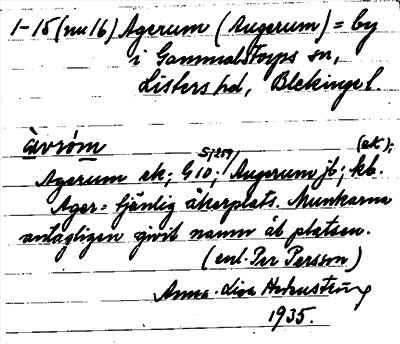 1-15 (nu 16) Agerum (Augerum) = by
i Gammalstorps sn,
Listers hd, Blekinge l.
àvróm (ek);
Agerum ek; G 10; Augerum jb; kb.
Ager = tjänlig åkerplats. Munkarna
antagligen givit namn åt platsen.
(enl. Per Persson)
Anna-Lisa
1935.